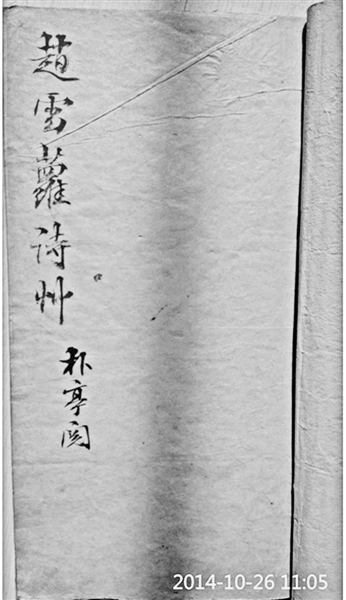 趙雪蘿詩艸
朴亭閱
2014-10-26 11:05